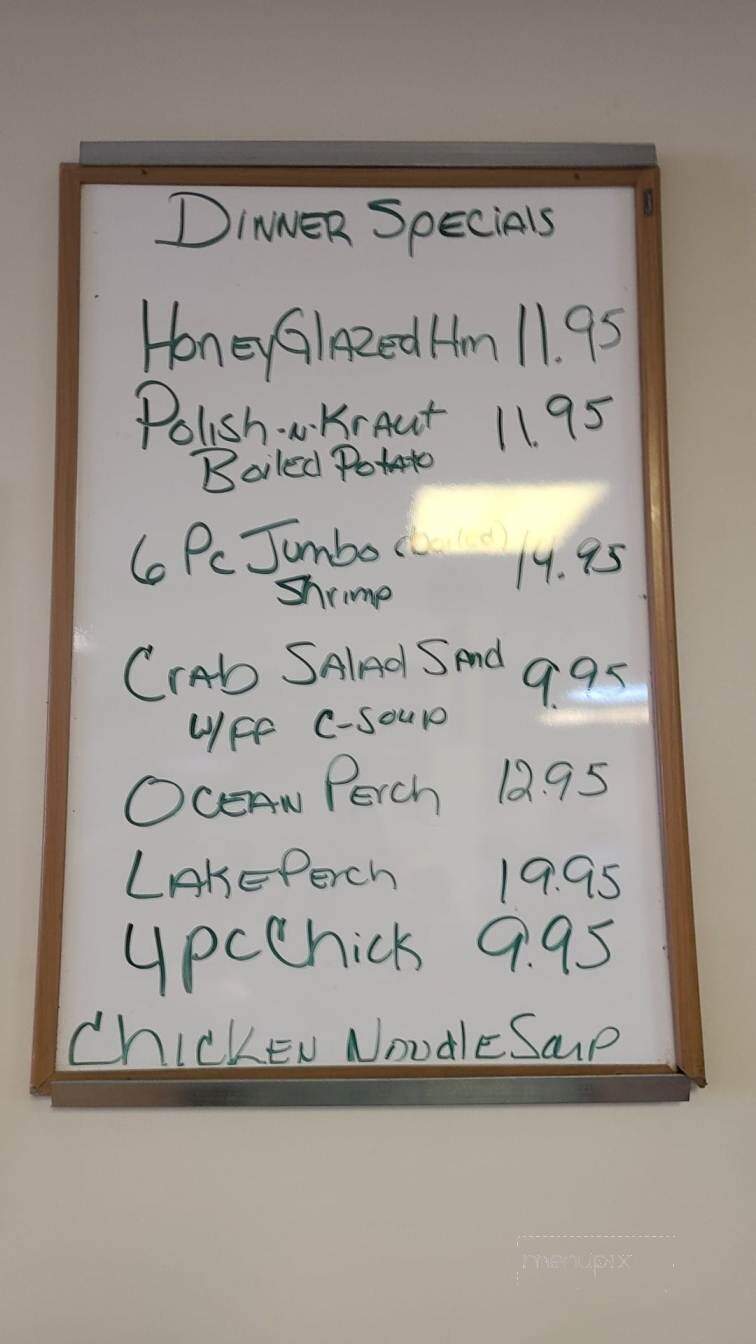 DINNER SPECIALS
Honey Glazed Hm 11.95
Polish-N-Kraut 11.95
Boiled Potato
6 Pc Jumbo (boiled) 14.95
Shrimp
Crab Salad Sand 9.95
w/FF C-Soup
Ocean Perch 12.95
Lake Perch 19.95
4 pc Chick 9.95
Chicken Noodle Soup
menupix